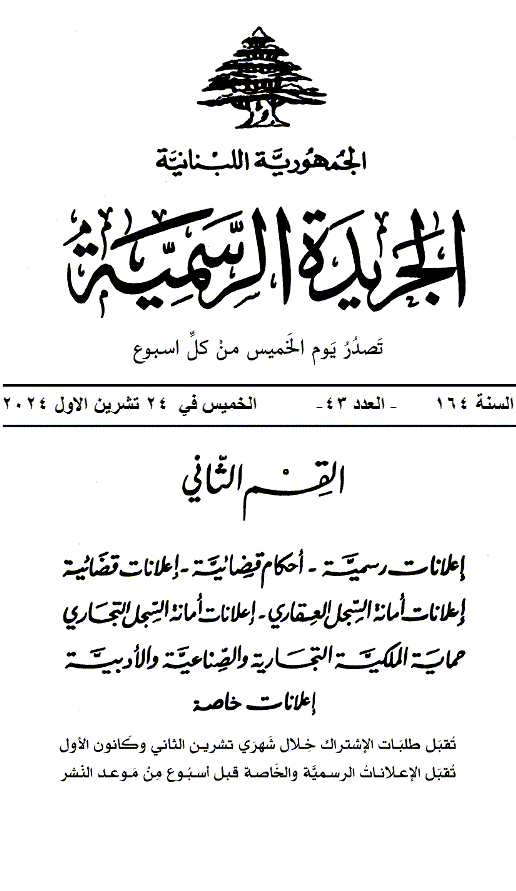 الجُمهُوريَّة اللبْنانيَّة
الجَريدَة الرسَّمِيَّة
تَصدُرُ يَوم الخَميس منْ كلِّ اسبوع
السنة ١٦٤ - العدد ٤٣- الخميس في ٢٤ تشرين الاول ٢٠٢٤
القِسْم الثّاني
إعلانات رسميَّة - أحكام قضائيَّة - إعلانات قضائية
إعلانات أمانة السِّجل العِقاري - إعلانات أمانة السِّجل التجاري
حمايَة الملكيَّة التجارية والصِّناعيَّة والأدبيَّة
إعلانات خاصة
تُقبَل طلبَات الإشتراك خِلال شَهرَي تشرين الثاني وكَانون الأول
تُقبَل الإعلاناتُ الرسميَّة والخَاصة قبل أسبُوع مِنْ مَوعد النّشر